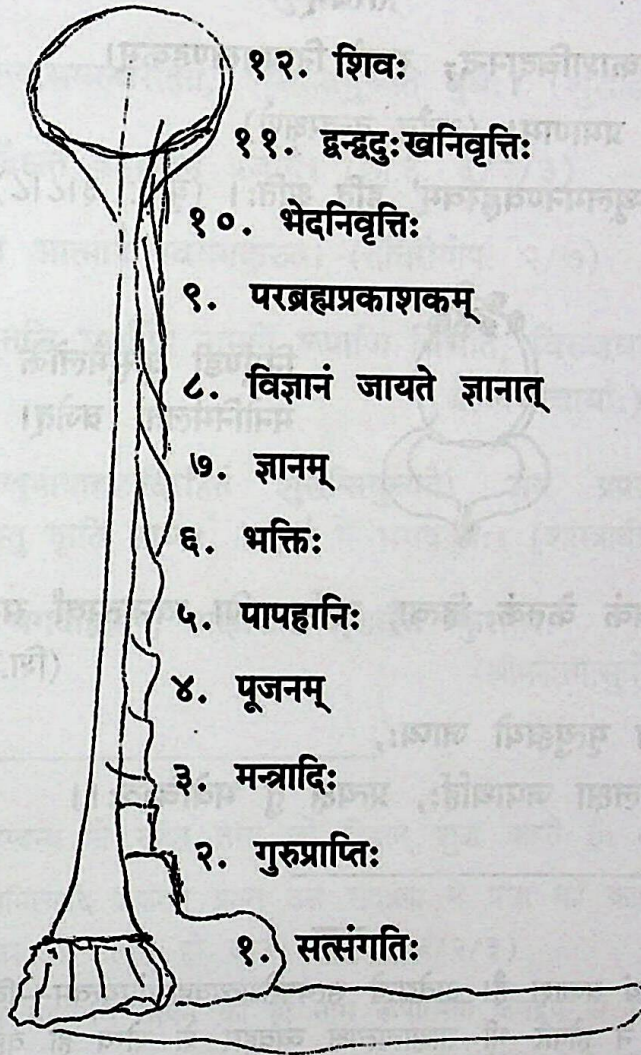 १२. शिवः
११. द्वन्द्वदुःखनिवृत्तिः
१०. भेदनिवृत्तिः
९. परब्रह्मप्रकाशकम्
८. विज्ञानं जायते ज्ञानात्
७. ज्ञानम्
६. भक्तिः
५. पापहानिः
४. पूजनम्
३. मन्त्रादिः
२. गुरुप्राप्तिः
१. सत्संगतिः